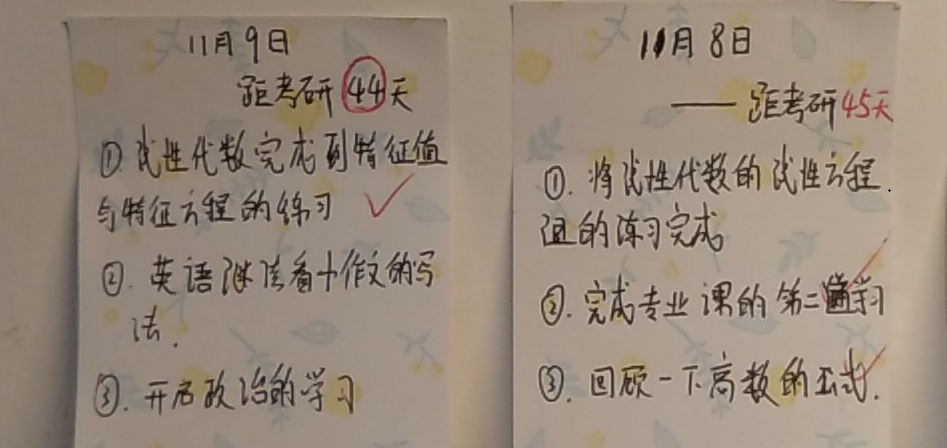 11月9日
距考研44天
①线性代数完成到特征值
与特征方程的练习
②.英语继续看小作文的写
法.
③.开启政治的学习
11月8日
——距考研45天
①.将线性代数的线性方程
组的练习完成
②.完成专业课的第二遍学习
③.回顾一下高数的公式.